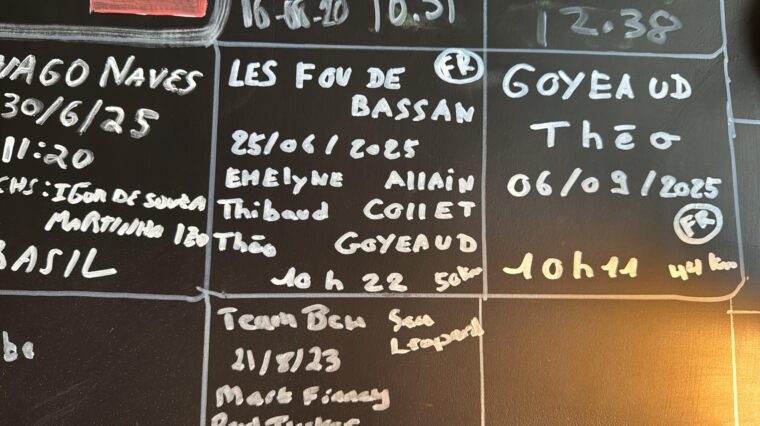 16-08-20 10.51
12.38
NAVES
30/6/25
11:20
IGOR DE SOUZA
MARTINHO
LES FOU DE
FR
BASSAN
25/06/2025
EMElyNE ALLAiN
Thibaud COLLET
Théo GOYEAUD
10 h 22 50km
GOYEAUD
Théo
06/09/2025
FR
10h11 44 km
Team Ben Sea
Leopard
21/8/23
Mark Finney